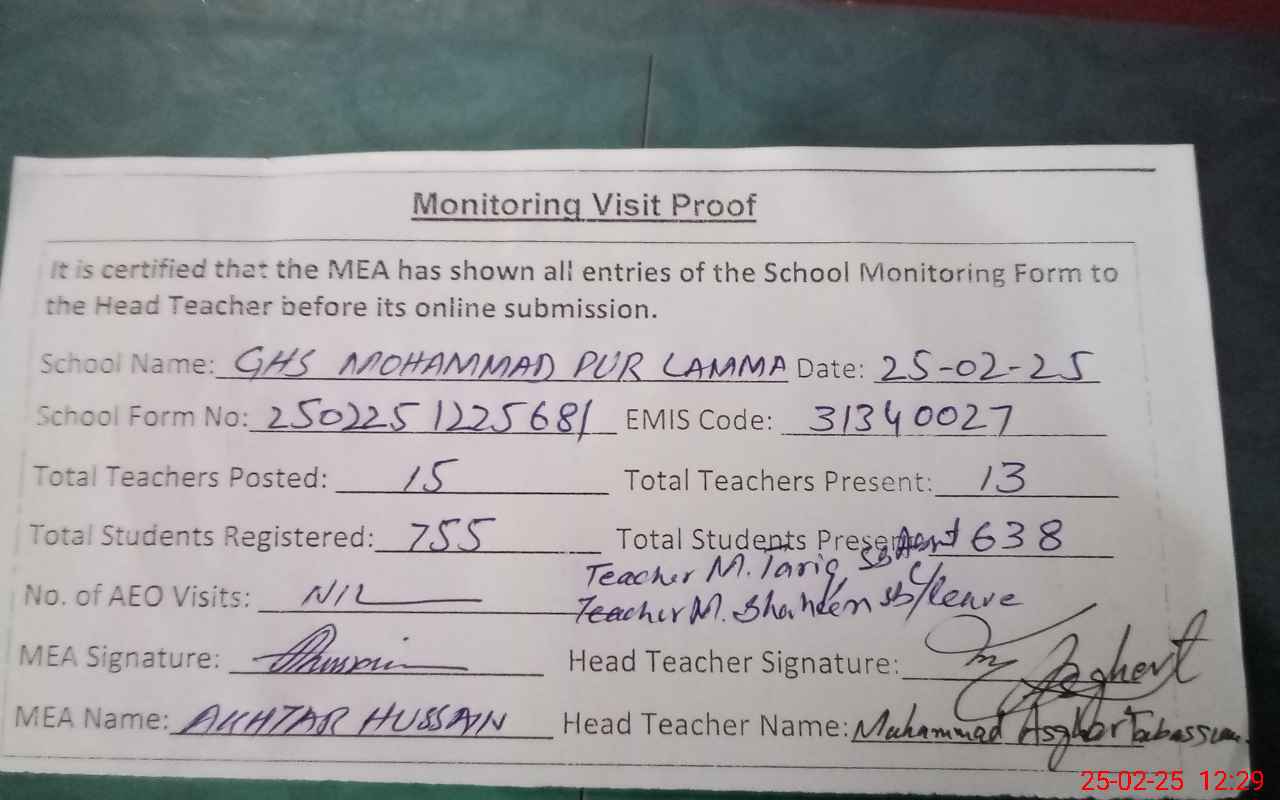 Monitoring Visit Proof
It is certified that the MEA has shown all entries of the School Monitoring Form to
the Head Teacher before its online submission.
School Name: GHS MOHAMMAD PUR LAMMA Date: 25-02-25
School Form No: 250225 1225681 EMIS Code: 31340027
Total Teachers Posted: 15 Total Teachers Present: 13
Total Students Registered: 755 Total Students Present 638
Teacher M. Tariq SB
No. of AEO Visits: NIL
Teacher M. Shaheen sb / leave
MEA Signature: Head Teacher Signature:
MEA Name: AKHTAR HUSSAIN Head Teacher Name: Muhammad Asghar Tabassum.
25-02-25 12:29